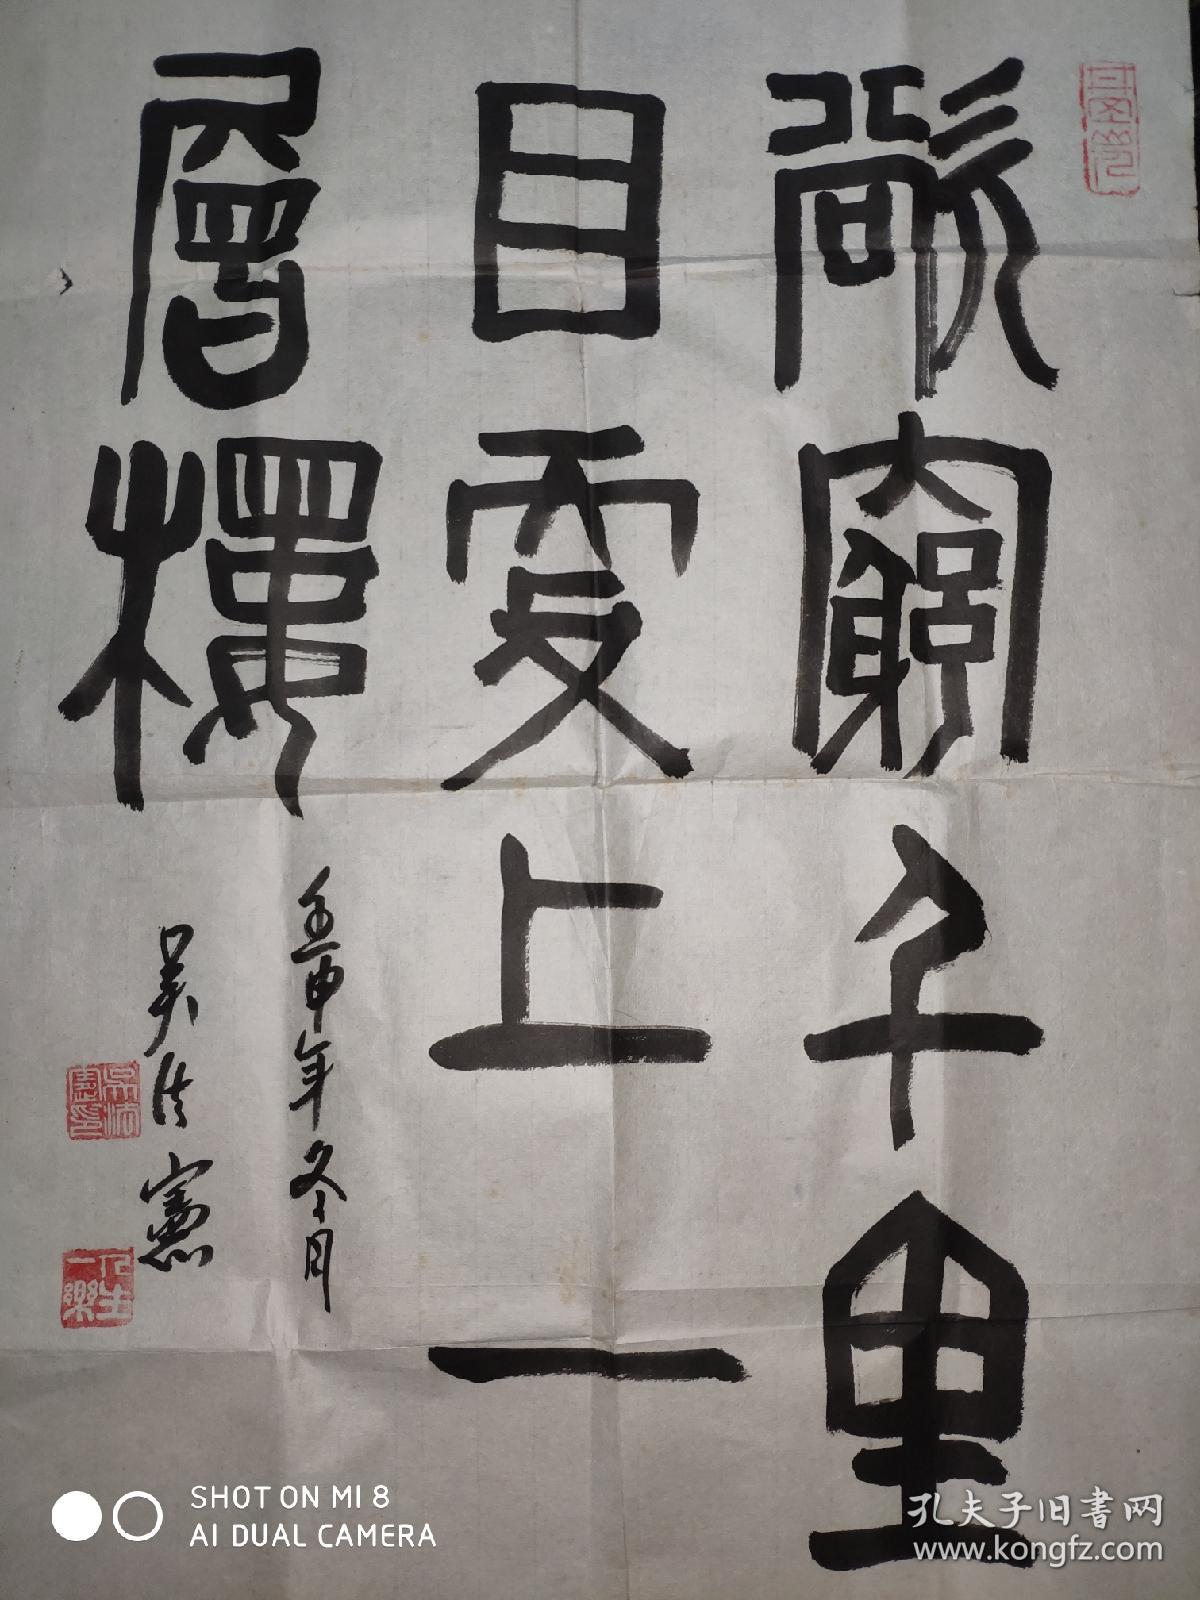 欲窮千里
目更上一
層樓
壬申年冬月
吳法憲
吳法憲印
人生一樂
SHOT ON MI 8
AI DUAL CAMERA
孔夫子旧書网
www.kongfz.com